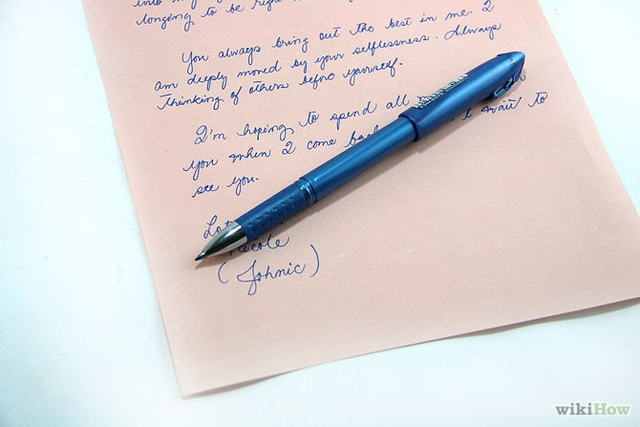 longing to be right
You always bring out the best in me. I
am deeply moved by your selflessness. Always
thinking of others before yourself.
I'm hoping to spend all
you when I come back I wait to
see you.
(Johnic)
wikiHow